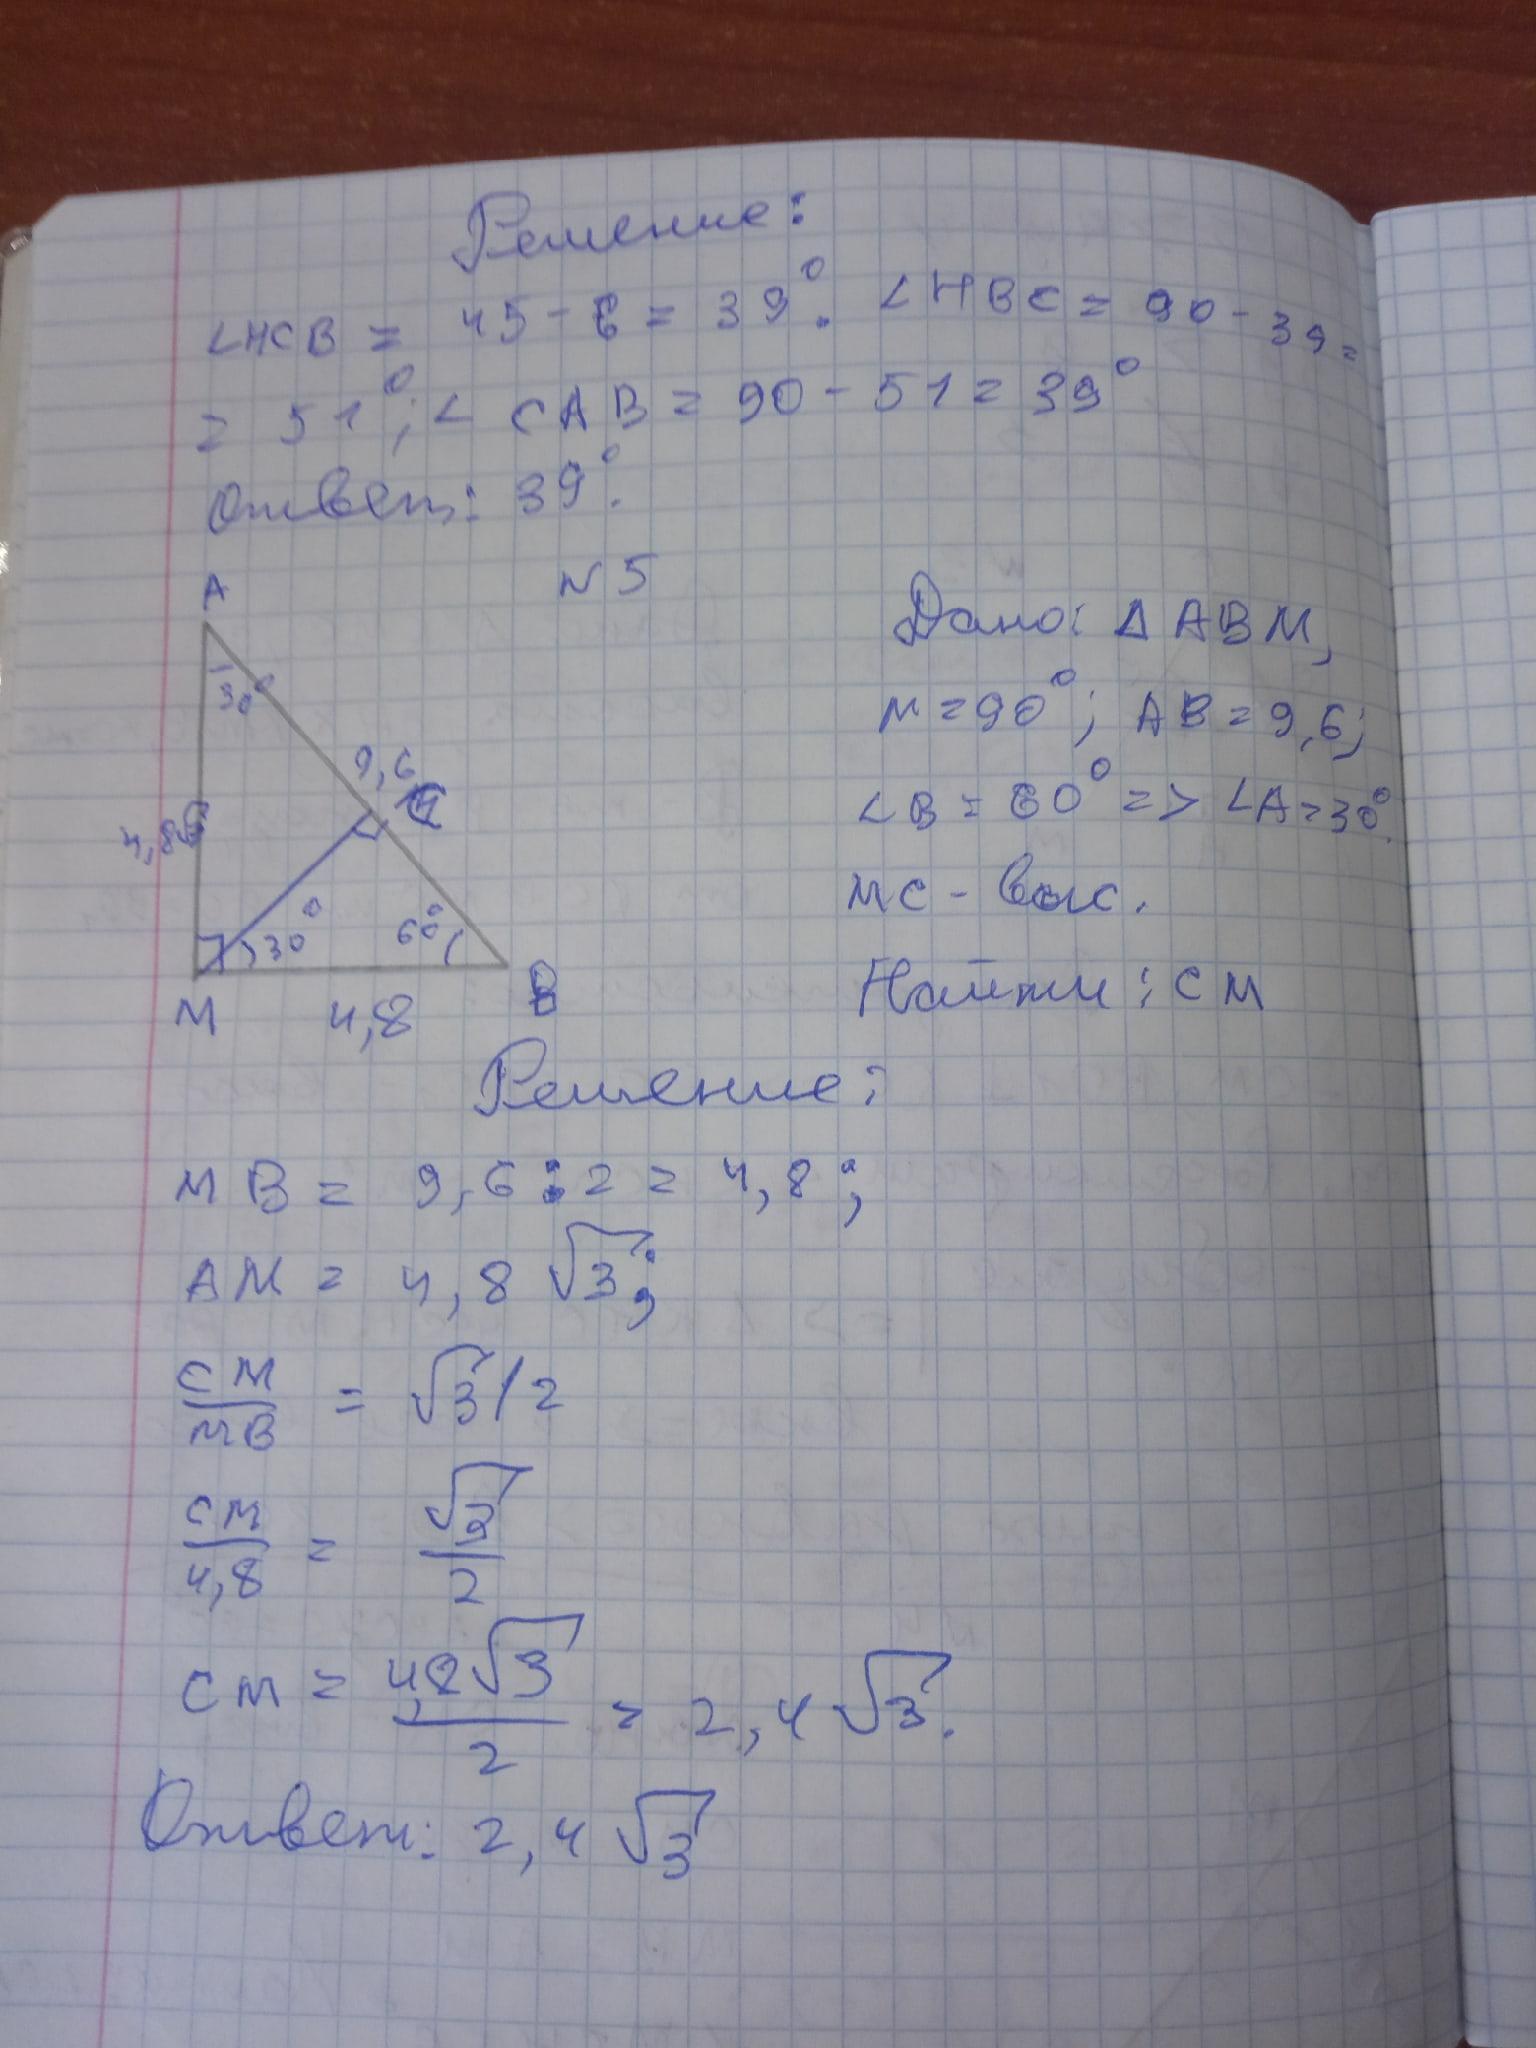 Решение:
∠HCB = 45 - 6 = 39°. ∠HBC = 90 - 39 =
= 51°; ∠CAB = 90 - 51 = 39°
Ответ: 39°.
N5
A
30°
9,6
C
4,8
30°
60°
M
4,8
B
Дано: ΔABM,
M = 90°; AB = 9,6;
∠B = 60° => ∠A = 30°.
MC - выс.
Найти: CM
Решение:
MB = 9,6 : 2 = 4,8;
AM = 4,8√3;
CM/MB = √3/2
CM/4,8 = √3/2
CM = 4,8√3/2 = 2,4√3.
Ответ: 2,4√3